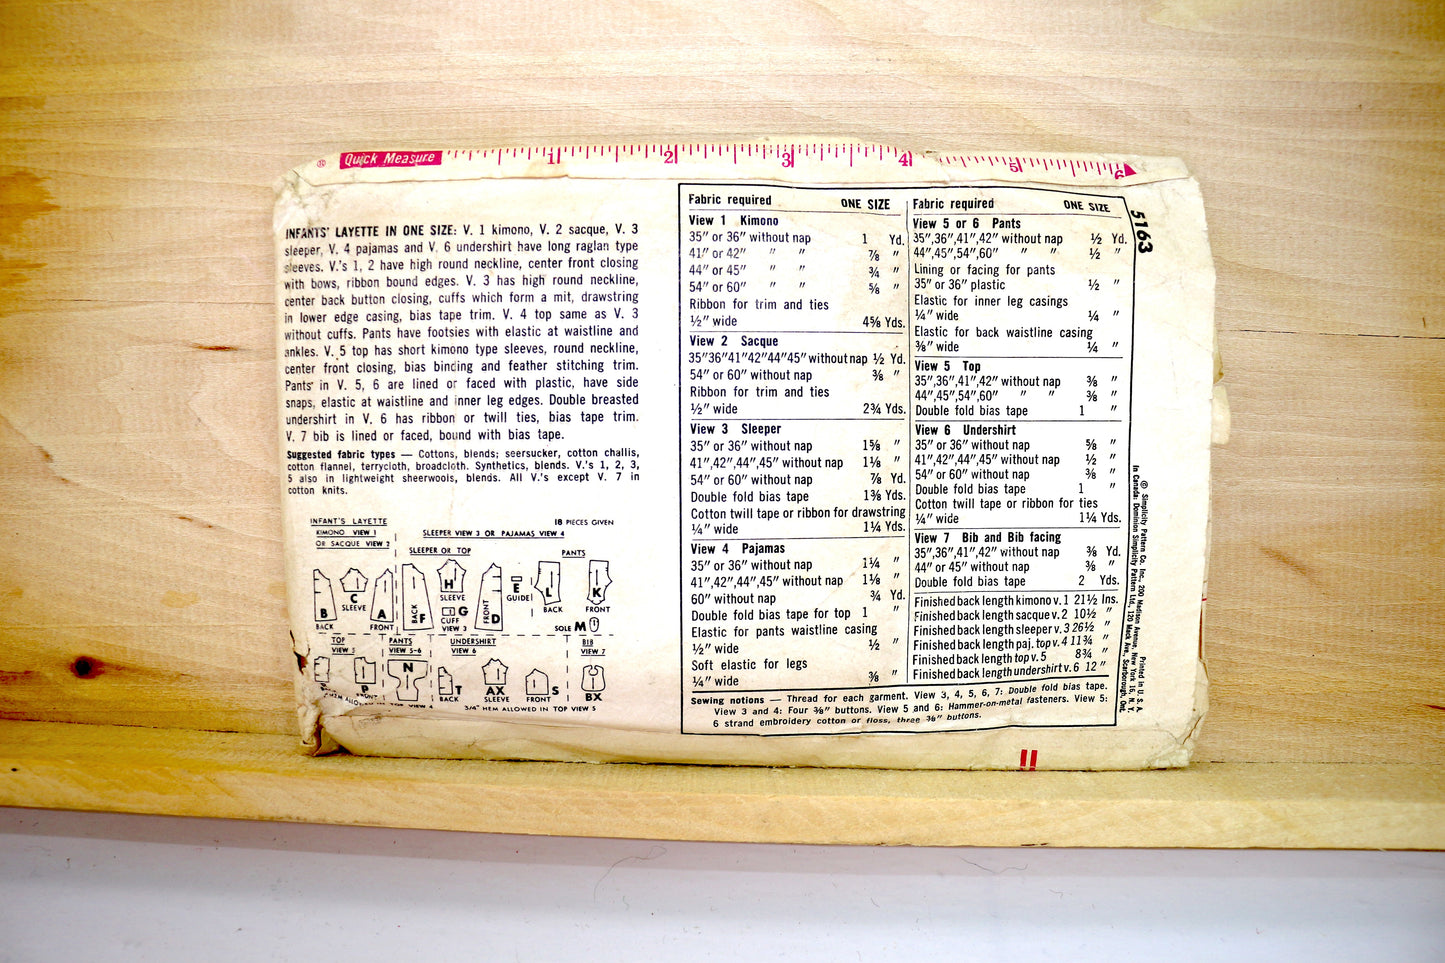 Quick Measure 1 2 3 4 5 6
INFANTS' LAYETTE IN ONE SIZE: V. 1 kimono, V. 2 sacque, V. 3
sleeper, V. 4 pajamas and V. 6 undershirt have long raglan type
sleeves. V.'s 1, 2 have high round neckline, center front closing
with bows, ribbon bound edges. V. 3 has high round neckline,
center back button closing, cuffs which form a mit, drawstring
in lower edge casing, bias tape trim. V. 4 top same as V. 3
without cuffs. Pants have footsies with elastic at waistline and
ankles. V. 5 top has short kimono type sleeves, round neckline,
center front closing, bias binding and feather stitching trim.
Pants in V. 5, 6 are lined or faced with plastic, have side
snaps, elastic at waistline and inner leg edges. Double breasted
undershirt in V. 6 has ribbon or twill ties, bias tape trim.
V. 7 bib is lined or faced, bound with bias tape.
Suggested fabric types — Cottons, blends; seersucker, cotton challis,
cotton flannel, terrycloth, broadcloth. Synthetics, blends. V.'s 1, 2, 3,
5 also in lightweight sheerwools, blends. All V.'s except V. 7 in
cotton knits.
INFANT'S LAYETTE
18 PIECES GIVEN
KIMONO VIEW 1
OR SACQUE VIEW 2
SLEEPER VIEW 3 OR PAJAMAS VIEW 4
SLEEPER OR TOP
PANTS
B
BACK
C
SLEEVE
A
FRONT
BACK
F
H
SLEEVE
G
CUFF
VIEW 3
FRONT
D
E
GUIDE
L
BACK
K
FRONT
SOLE M
TOP
VIEW 5
PANTS
VIEW 5-6
UNDERSHIRT
VIEW 6
BIB
VIEW 7
P
FRONT
N
T
BACK
AX
SLEEVE
S
FRONT
BX
TOP VIEW 4
3/4" HEM ALLOWED IN TOP VIEW 5
Fabric required ONE SIZE
View 1 Kimono
35" or 36" without nap 1 Yd.
41" or 42" " " ⅞ "
44" or 45" " " ¾ "
54" or 60" " " ⅝ "
Ribbon for trim and ties
½" wide 4⅝ Yds.
View 2 Sacque
35"36"41"42"44"45" without nap ½ Yd.
54" or 60" without nap ⅜ "
Ribbon for trim and ties
½" wide 2¾ Yds.
View 3 Sleeper
35" or 36" without nap 1⅝ "
41",42",44",45" without nap 1⅛ "
54" or 60" without nap ⅞ Yd.
Double fold bias tape 1⅜ Yds.
Cotton twill tape or ribbon for drawstring
¼" wide 1¼ Yds.
View 4 Pajamas
35" or 36" without nap 1¼ "
41",42",44",45" without nap 1⅛ "
60" without nap ¾ Yd.
Double fold bias tape for top 1 "
Elastic for pants waistline casing
½" wide ½ "
Soft elastic for legs
¼" wide ⅜ "
Fabric required ONE SIZE
View 5 or 6 Pants
35",36",41",42" without nap ½ Yd.
44",45",54",60" " " ½ "
Lining or facing for pants
35" or 36" plastic ½ "
Elastic for inner leg casings
¼" wide ¼ "
Elastic for back waistline casing
⅜" wide ¼ "
View 5 Top
35",36",41",42" without nap ⅜ "
44",45",54",60" " " ⅜ "
Double fold bias tape 1 "
View 6 Undershirt
35" or 36" without nap ⅝ "
41",42",44",45" without nap ½ "
54" or 60" without nap ⅜ "
Double fold bias tape 1 "
Cotton twill tape or ribbon for ties
¼" wide 1¼ Yds.
View 7 Bib and Bib facing
35",36",41",42" without nap ⅜ Yd.
44" or 45" without nap ⅜ "
Double fold bias tape 2 Yds.
Finished back length kimono v. 1 21½ Ins.
Finished back length sacque v. 2 10½ "
Finished back length sleeper v. 3 26½ "
Finished back length paj. top v. 4 11¾ "
Finished back length top v. 5 8¾ "
Finished back length undershirt v. 6 12 "
Sewing notions — Thread for each garment. View 3, 4, 5, 6, 7: Double fold bias tape.
View 3 and 4: Four ⅜" buttons. View 5 and 6: Hammer-on-metal fasteners. View 5:
6 strand embroidery cotton or floss, three ⅜" buttons.
5163
© Simplicity Pattern Co. Inc., 200 Madison Avenue, New York 16, N. Y.
In Canada: Dominion Simplicity Pattern Ltd., 120 Mack Ave., Scarborough, Ont.
Printed in U. S. A.